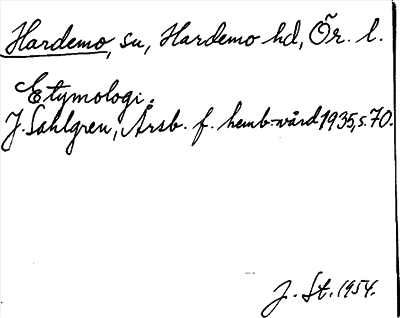 Hardemo, sn, Hardemo hd, Ör. l.
Etymologi.
J. Sahlgren, Årsb. f. hemb.-vård 1935, s. 70.
J. St. 1954.